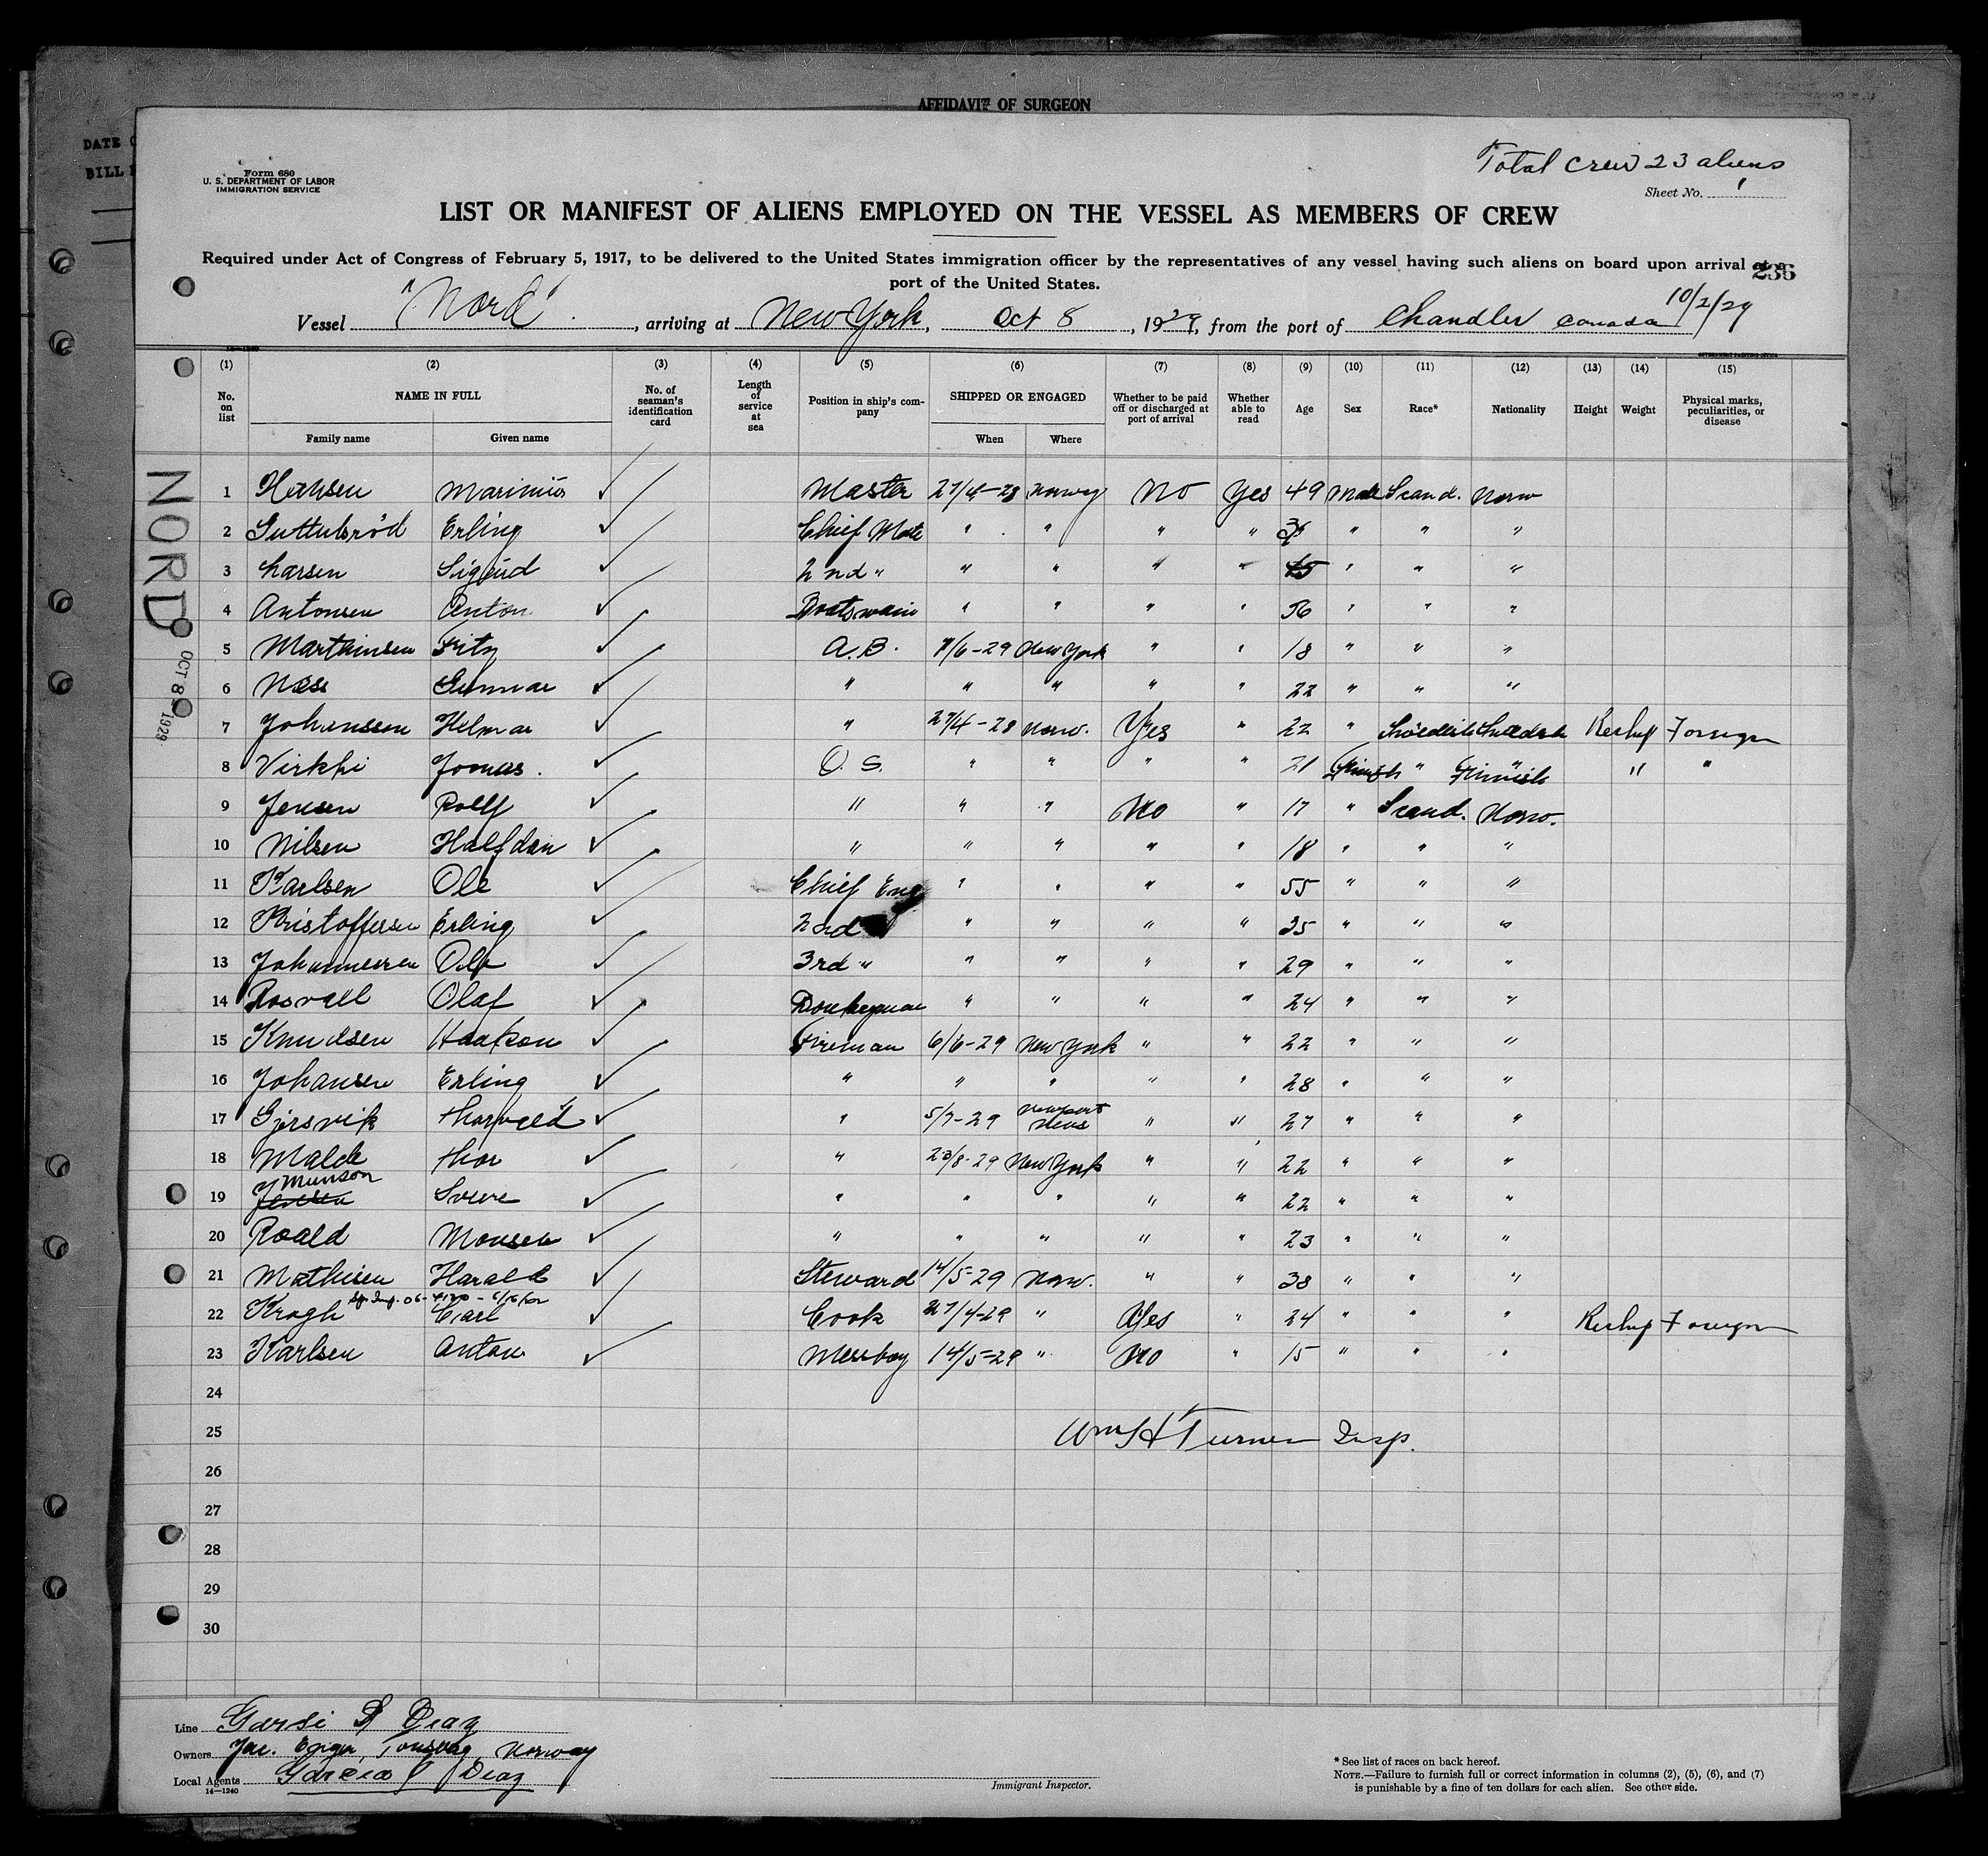 AFFIDAVIT OF SURGEON
DATE
BILL
Form 680
U. S. DEPARTMENT OF LABOR
IMMIGRATION SERVICE
Total crew 23 aliens
Sheet No. 1
LIST OR MANIFEST OF ALIENS EMPLOYED ON THE VESSEL AS MEMBERS OF CREW
Required under Act of Congress of February 5, 1917, to be delivered to the United States immigration officer by the representatives of any vessel having such aliens on board upon arrival at a
port of the United States.
236
Vessel "Nord", arriving at New York, Oct 8, 1929, from the port of Chandler Canada 10/2/29
(1) (2) (3) (4) (5) (6) (7) (8) (9) (10) (11) (12) (13) (14) (15)
No. on list NAME IN FULL No. of seaman's identification card Length of service at sea Position in ship's company SHIPPED OR ENGAGED Whether to be paid off or discharged at port of arrival Whether able to read Age Sex Race* Nationality Height Weight Physical marks, peculiarities, or disease
Family name Given name When Where
NORD
OCT 8 1929
1 Hansen Marinius ✓ Master 27/4-28 Norway No Yes 49 Male Scand. Norw
2 Erling ✓ Chief Mate " " " " " " "
3 Larsen Sigurd ✓ 2nd " " " " " 45 " " "
4 Antonsen Anton ✓ Boatswain " " " " 56 " " "
5 Marthinsen Fritz ✓ A.B. 7/6-29 New York " " 18 " " "
6 Næss Gunnar ✓ " " " " " 22 " " "
7 Johansson Helmar ✓ " 27/4-28 Norw. Yes " 22 " Swedish Swedish Reship Foreign
8 Virkki Joonas. ✓ O. S. " " " " 21 Finnish " Finnish " "
9 Jensen Rolf ✓ " " " No " 17 " Scand. Norw.
10 Nilsen Halfdan ✓ " " " " " 18 " " "
11 Karlsen Ole ✓ Chief Eng " " " " 55 " " "
12 Kristoffersen Erling ✓ 2nd " " " " 35 " " "
13 Johannessen Olf ✓ 3rd " " " " " 29 " " "
14 Rosvall Olaf ✓ Donkeyman " " " " 24 " " "
15 Knudsen Haakon ✓ Fireman 6/6-29 New York " " 22 " " "
16 Johansen Erling ✓ " " " " " 28 " " "
17 Gjersvik Thorvald ✓ " 5/7-29 Newport News " " 27 " " "
18 Malde Thor ✓ " 23/8-29 New York " " 22 " " "
19 Jensen Munson Sverre ✓ " " " " " 22 " " "
20 Roald Monsen ✓ " " " " " 23 " " "
21 Mathisen Harald ✓ Steward 14/5-29 Norw. " " 38 " " "
22 Krogh Carl ✓ Cook 27/4-29 " Yes " 24 " " " Reship Foreign
23 Karlsen Anton ✓ Messboy 14/5-29 " No " 15 " " "
24
25 Wm H Turner Insp.
26
27
28
29
30
Line Garsi & Diaz
Owners Norway
Local Agents Garcia & Diaz
14—1240
Immigrant Inspector.
* See list of races on back hereof.
NOTE.—Failure to furnish full or correct information in columns (2), (5), (6), and (7)
is punishable by a fine of ten dollars for each alien. See other side.